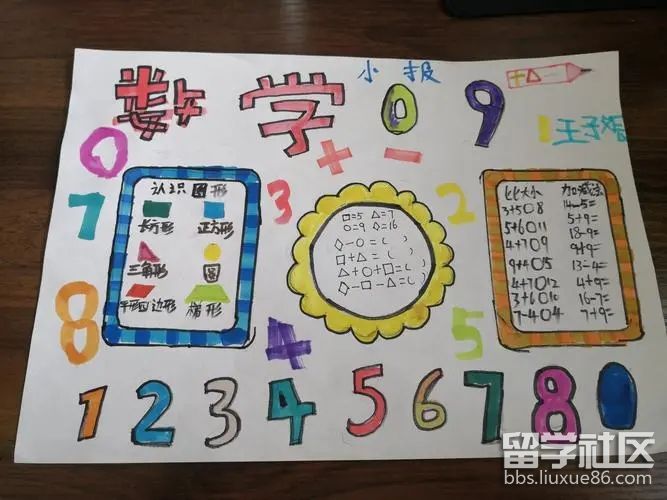 数学 小报 0 9
王子
0
7
8
认识图形
长方形 正方形
三角形 圆
平形四边形 梯形
3 + -
4
□=5 △=7
○=9 ◇=16
◇-○=( )
□+△=( )
△+○+□=( )
◇-□-△=( )
2
5
比大小
3+5○8
5+6○11
4+7○9
9+4○15
4+7○12
3+6○10
7-4○4
加减法
14-5=
5+9=
18-9=
9+9=
13-4=
4+9=
16-7=
7+9=
1 2 3 4 5 6 7 8 0
留学社区
bbs.liuxue86.com